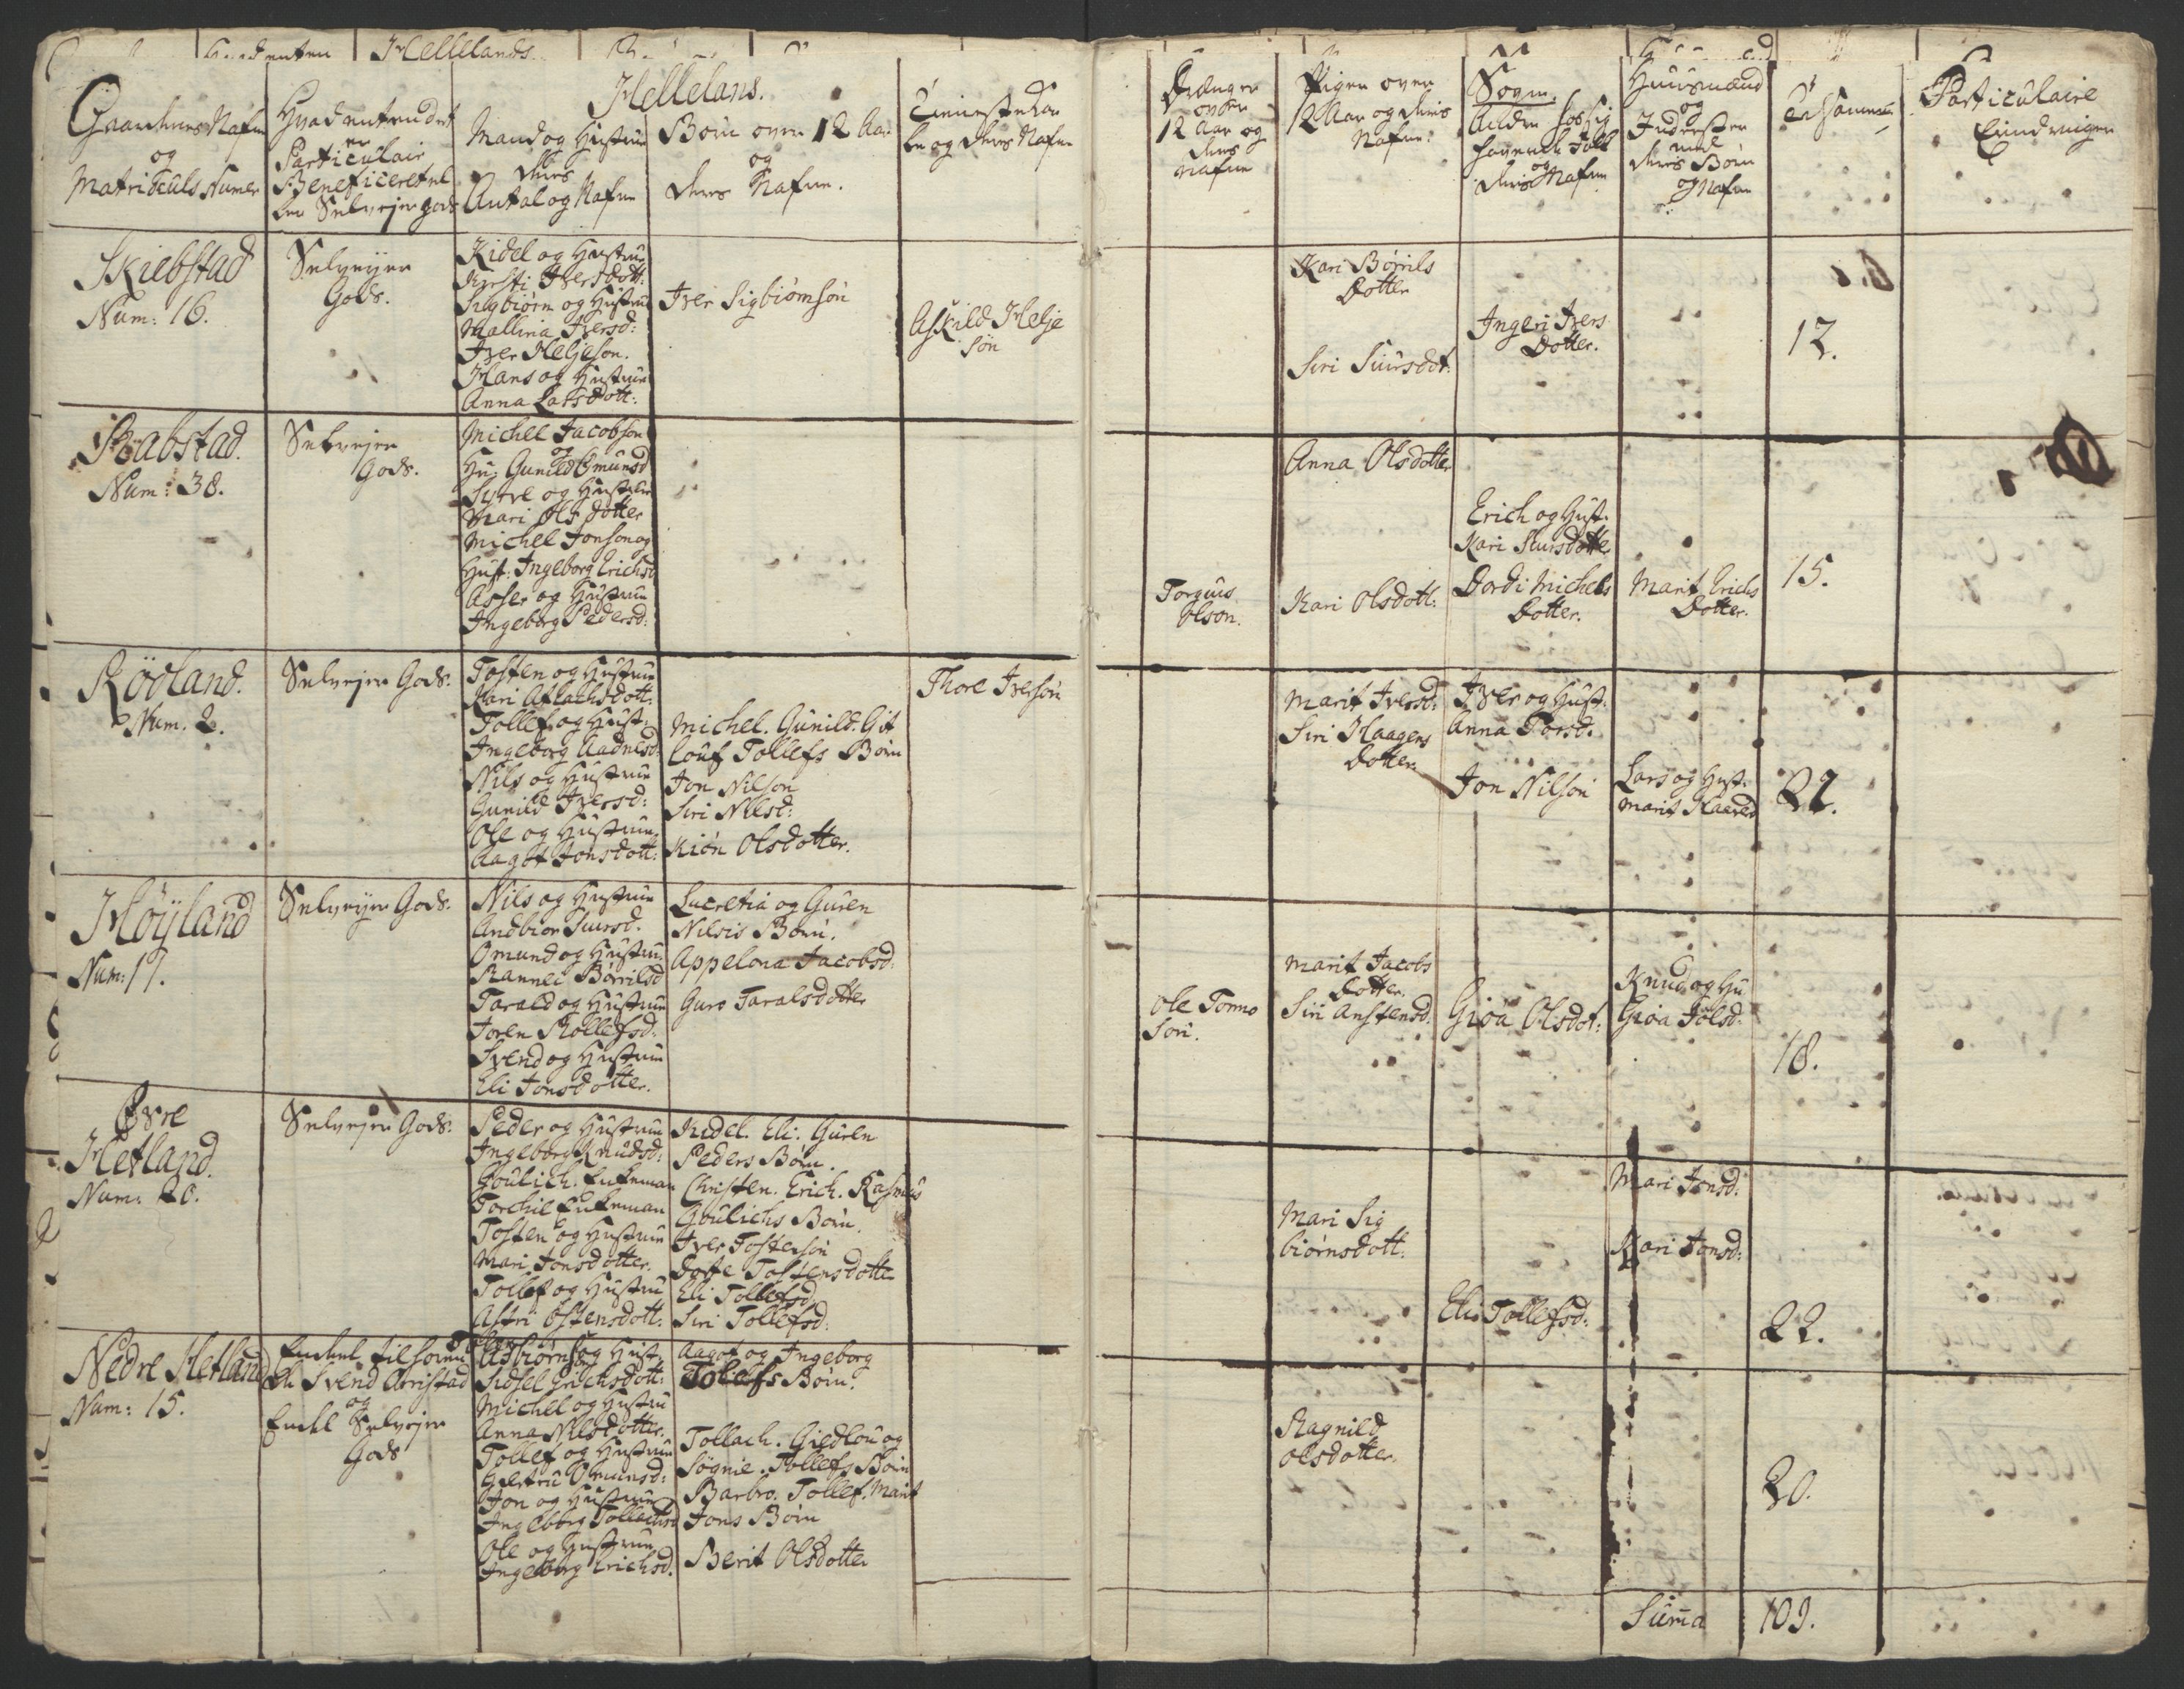 Hellelands
Hellelans.
Gaardenes Nafne
og
Matriculs Numer
Hvad entendet
er
Particulair
Beneficeret el
ler Selvejer gods
Mand og Hustrue
Deres
Antal og Nafne
Børn over 12 Aar
og
deres Nafne.
Tienistekar
le og deres Nafne
Drenger
over
12 Aar og
deres
Nafne
Piger over
12 Aar og deres
Nafne.
Sogn.
Andre
og
deres Nafne
Huusmænd
og
Inderster
med
deres Børn
og Nafne
Tilsammen
Particulaire
Skiebstad
Num: 16.
Selvejer
Gods.
Kidel og Hustrue
Kirsti Iversdott:
Sigbiørn og Hustrue
Mallina Iversd:
Iver Heljeson.
Hans og Hustrue
Anna Larsdott:
Iver Sigbiørnsøn
Askild Helje
søn
Kari Børrils
Dotter
Siri Siursdot:
Ingeri Ivers
Dotter.
12.
Rabstad.
Num: 38.
Selvejer
Gods.
Michel Jacobson
og
Hu: Gunild Omunsd
Syrve og Hustrue
Mari Ols dotter
Michel Jonson og
Hust. Ingeborg Erichsd
Asser og Hustrue
Ingeborg Pedersd:
Torguis
Olson.
Anna Olsdotter
Kari Olsdott:
Erich og Hust.
Kari Siursdotter
Dordi Michels
Dotter.
Marit Erichs
Dotter.
15.
Rødland.
Num. 2.
Selvejer Gods.
Tosten og Hustrue
Kari Aslachsdott:
Tollef og Hust:
Ingeborg Aadnesd:
Nils og Hustrue
Gunild Iversd:
Ole og Hustrue
Aagot Jonsdott:
Michel. Gunild. Git
louf Tollefs Børn
Jon Nilson
Siri Nilsd:
Kiøn Olsdotter.
Thore Iversøn
Marit Iversd:
Siri Haagens
Dotter
Iver og Hust:
Anna Torsd:
Jon Nilson
Lars og Hust:
Marit Haavrd
22.
Høyland
Num: 17.
Selvejer Gods.
Nils og Hustrue
Andbior Siursd.
Omund og Hustrue
Rannei Børrilsd
Tarald og Hustrue
Joren Rollefsd.
Svend og Hustrue
Eli Jonsdotter.
Lucretia og Guren
Nilsis Børn.
Appelona Jacobsd:
Guro Taralsdotter
Ole Tonno
søn.
Marit Jacobs
Dotter.
Siri Anstensd.
Giøa Olsdot:
Knud og Hu.
Giøa Joelsd.
18.
Øvre
Hetland.
Num: 20.
Selvejer Gods.
Peder og Hustrue
Ingeborg Knudsd:
Goulich. Enkeman
Torchil Enkeman
Tosten og Hustrue
Mari Jonsdotter.
Tollef og Hustru
Astri Ostensdott:
Kidel. Eli. Guren
Peders Børn.
Christen. Erich. Rasmus
Goulichs Børn.
Iver Tostenson
Dorte Tostensdotter
Eli Tollefsd
Siri Tollefsd:
Mari Sig
biørnsdott:
Eli Tollefsd:
Mari Jonsd:
Kari Jonsd:
22.
Nedre Hetland
Num: 15.
Svend Aarstad
og
Selvejer
Gods
Asbiørn og Hust.
Sidsel Erichsdott:
Michel og Hustru
Anna Nilsdotter.
Tollef og Hustrue
Giertru Omunsd:
Jon og Hustrue
Ingeborg Tollachsd
Ole og Hustrue
Ingeborg Erichsd.
Aagot og Ingeborg
Tolefs Børn.
Tollach. Giedlou og
Søgnie. Tollefs Børn
Barbro. Tollef. Marit
Jons Børn
Berit Olsdotter
Ragnild
olsdotter.
20.
Sum̃a 109.